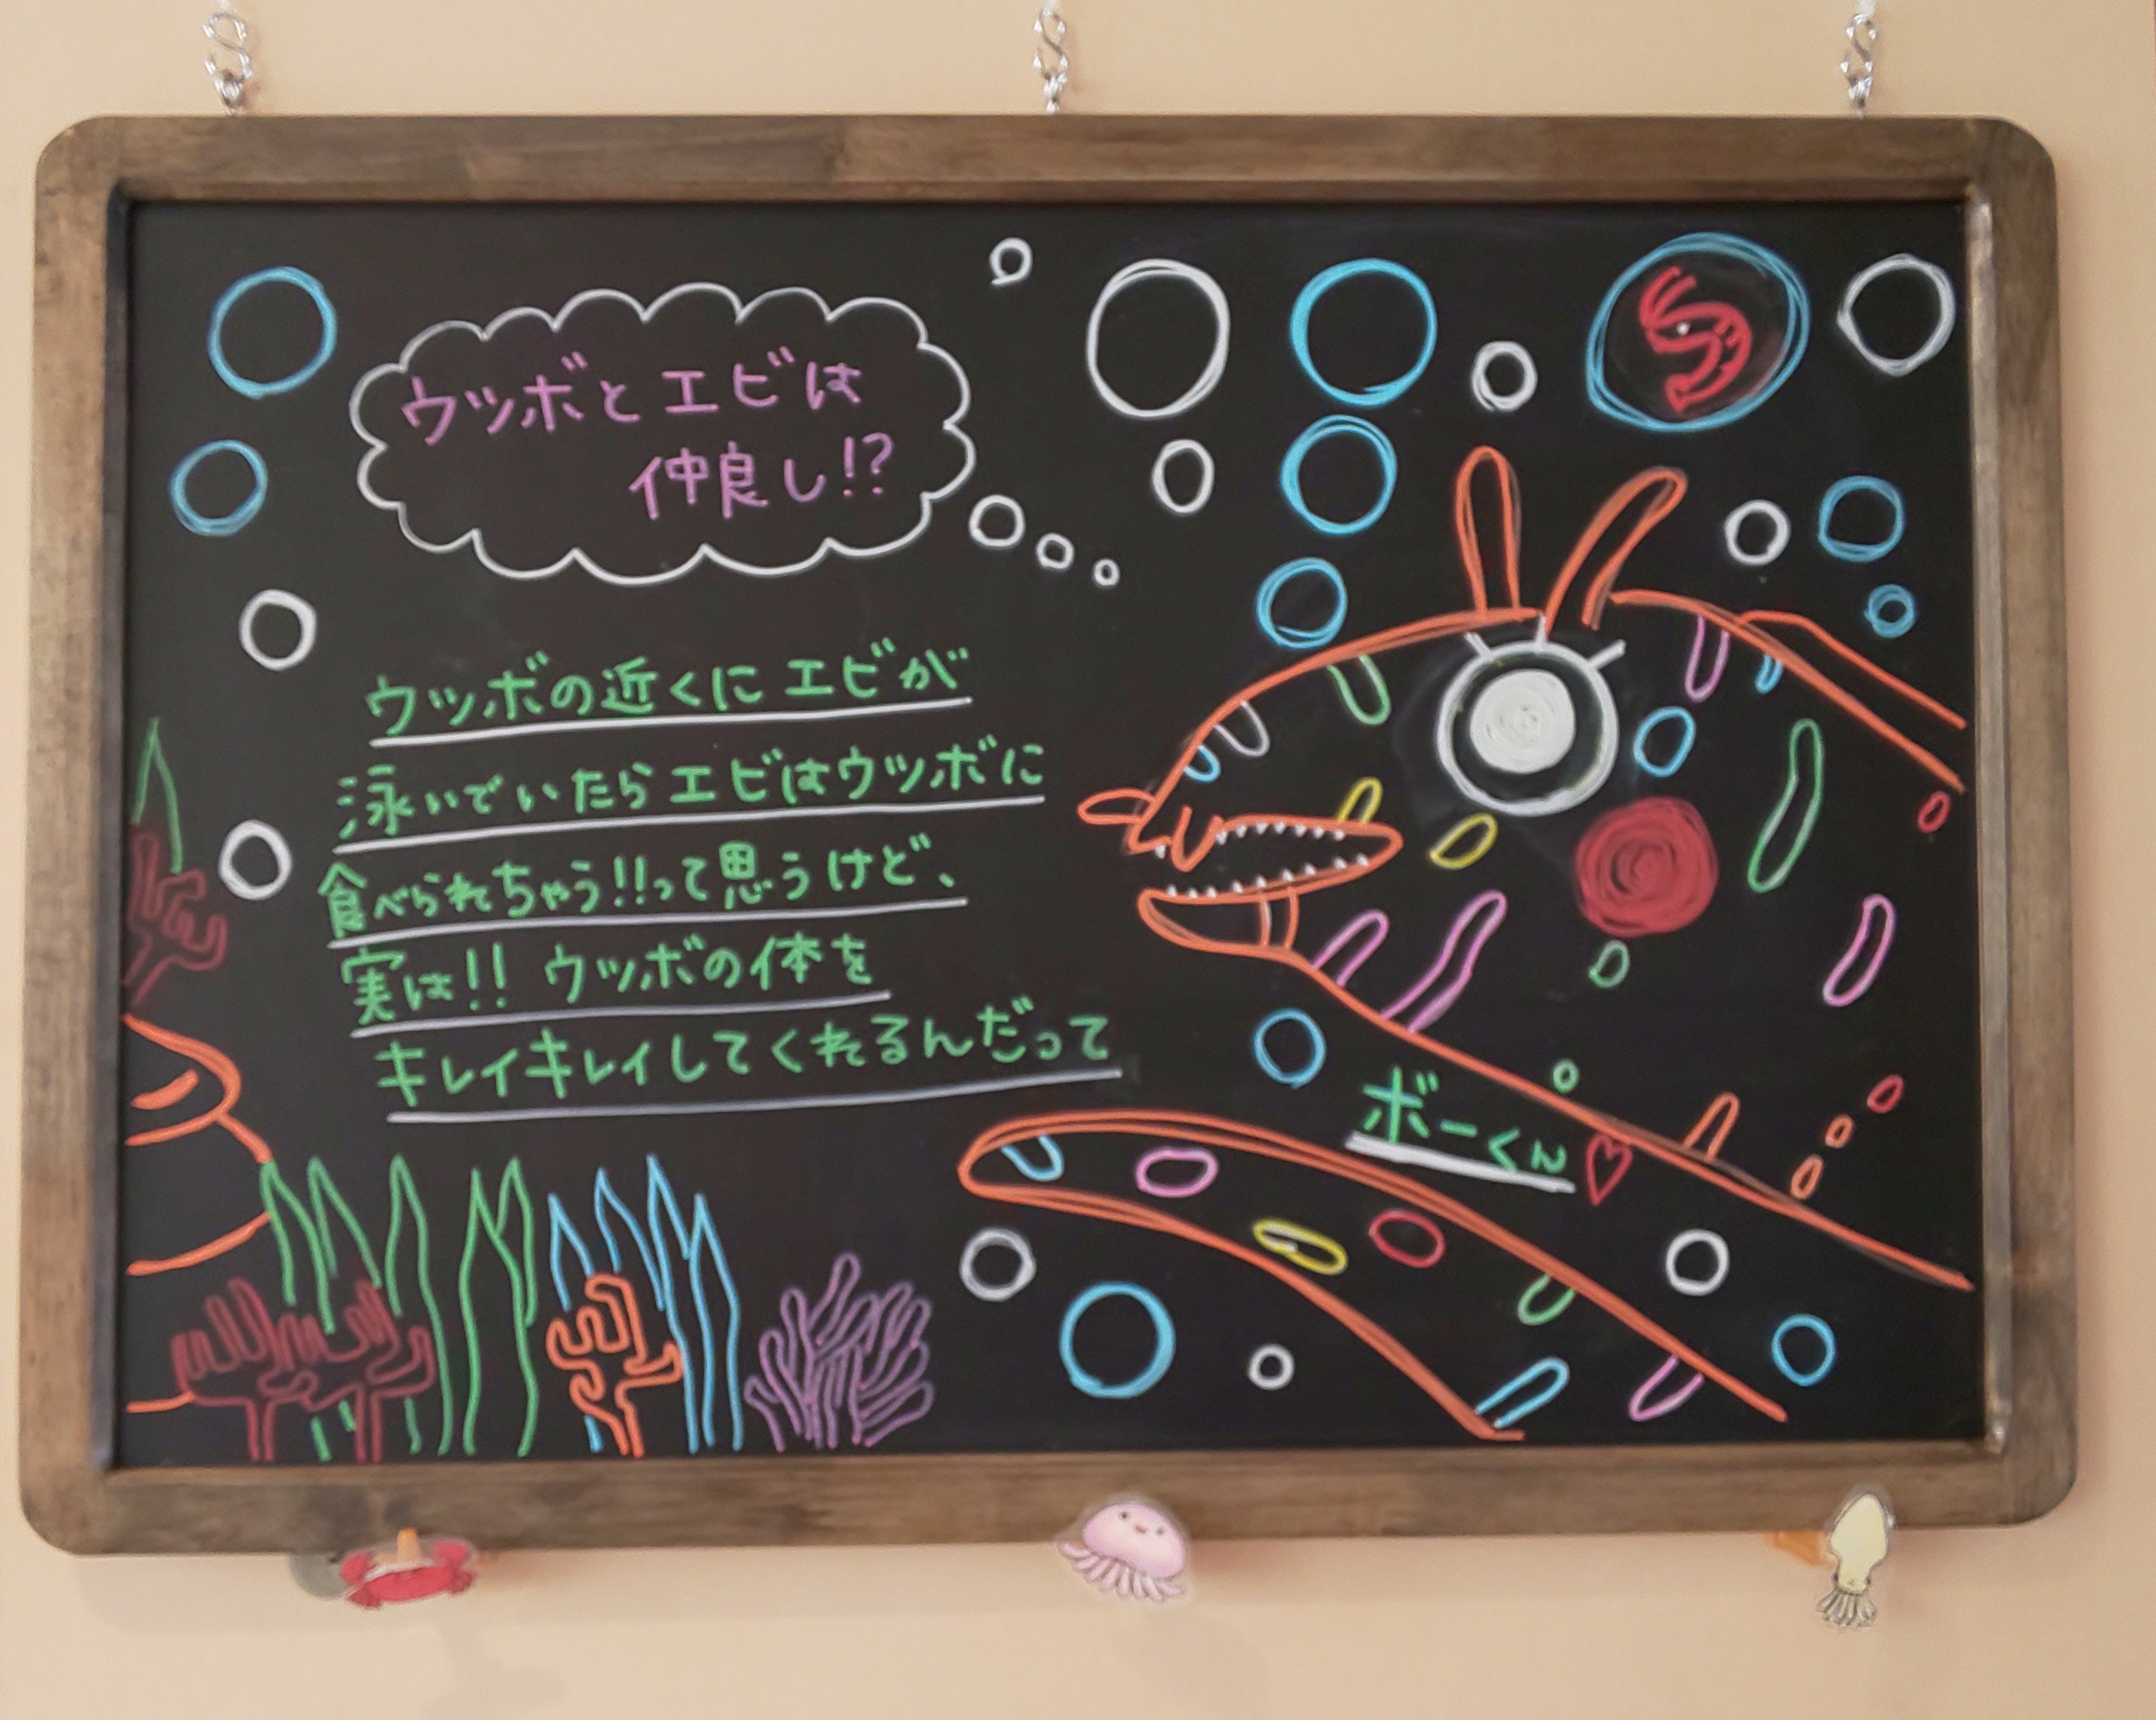 ウツボとエビは
仲良し!?
ウツボの近くにエビが
泳いでいたらエビはウツボに
食べられちゃう!!って思うけど、
実は!! ウツボの体を
キレイキレイしてくれるんだって
ボーくん